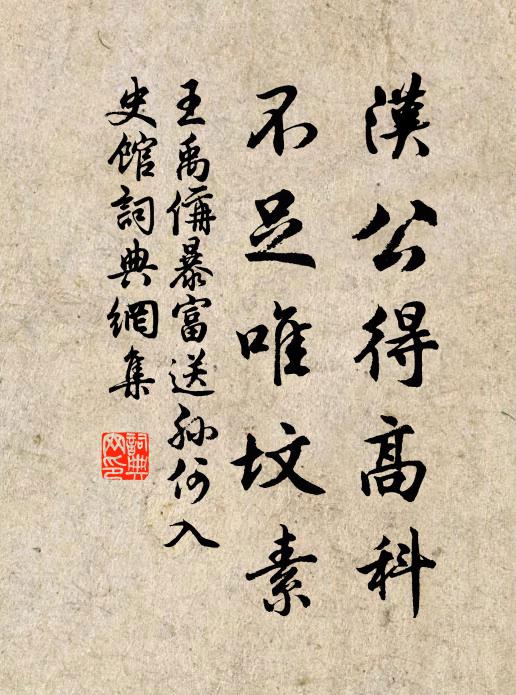 漢公得高科
不足唯坟素
王禹偁暴富送孫何入
史館詞典網集
詞典
网印